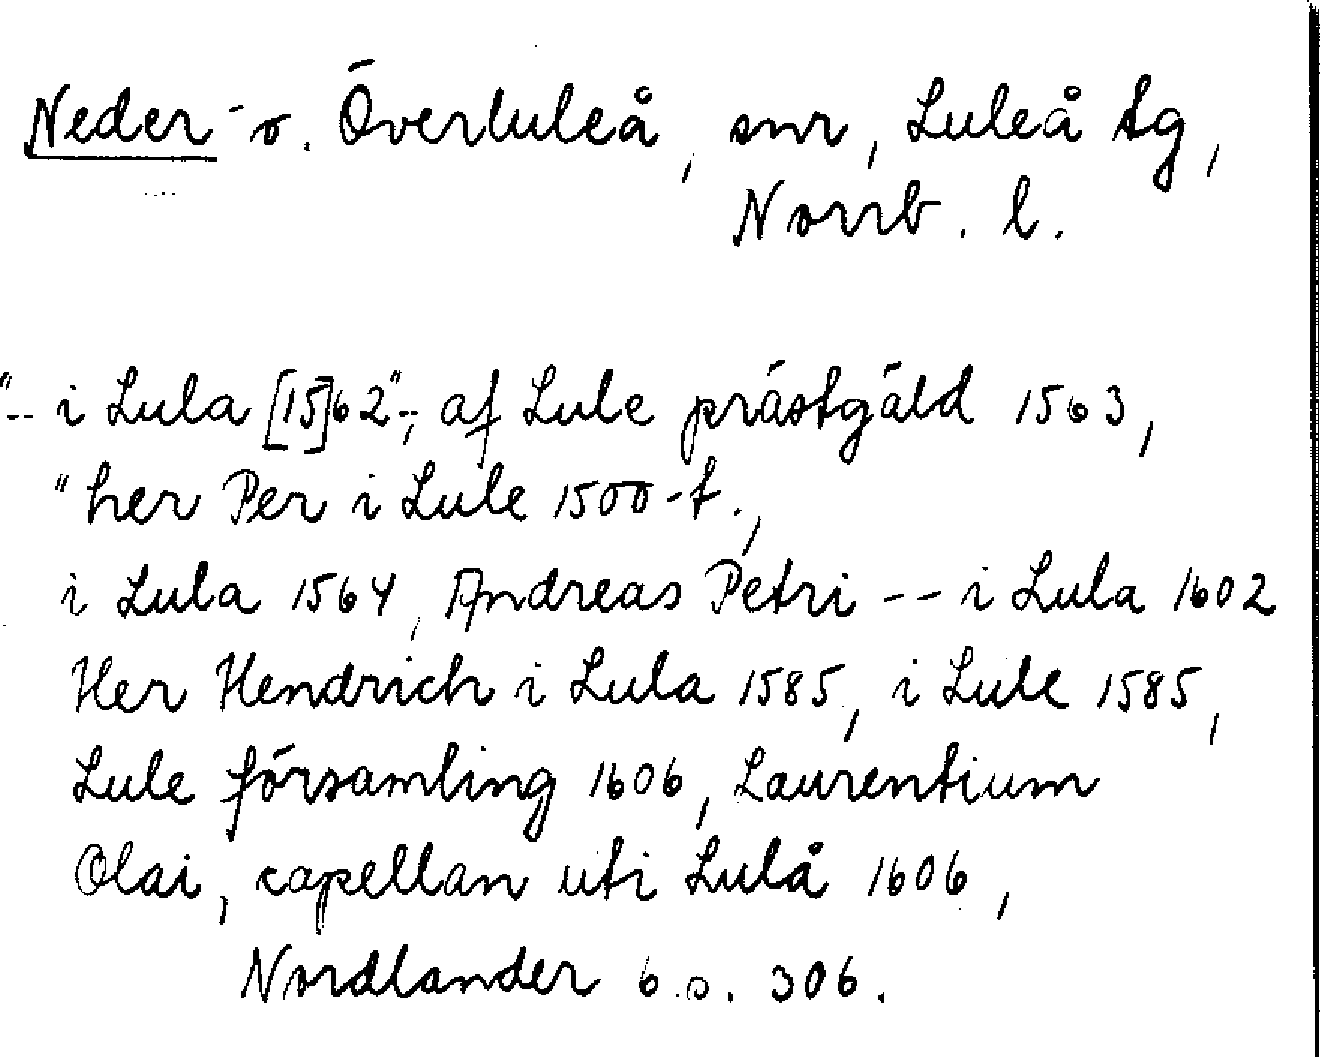 Neder- o. Överluleå, snr, Luleå tg,
Norrb. l.
"-- i Lula [15]62"-, af Lule prästgäld 1563,
"her Per i Lule 1500-t.,
i Lula 1564, Andreas Petri -- i Lula 1602
Her Hendrich i Lula 1585, i Lule 1585,
Lule församling 1606, Laurentium
Olai, capellan uti Lulå 1606,
Nordlander 6 s. 306.